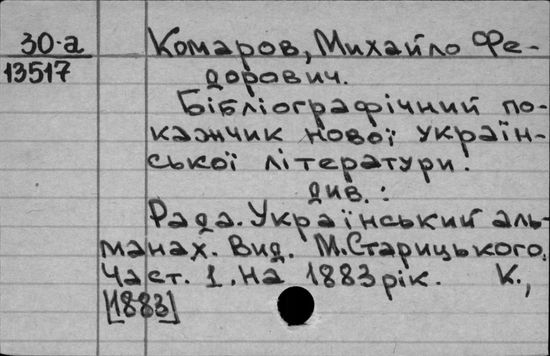 30-а
13517
Комаров, Михайло Фе-
дорович.
Бібліографічний по-
кажчик нової україн-
ської літератури.
див.:
Рада. Український аль-
манах. Вид. М.Старицького.
Част. 1. на 1883 рік. К.,
[1883]